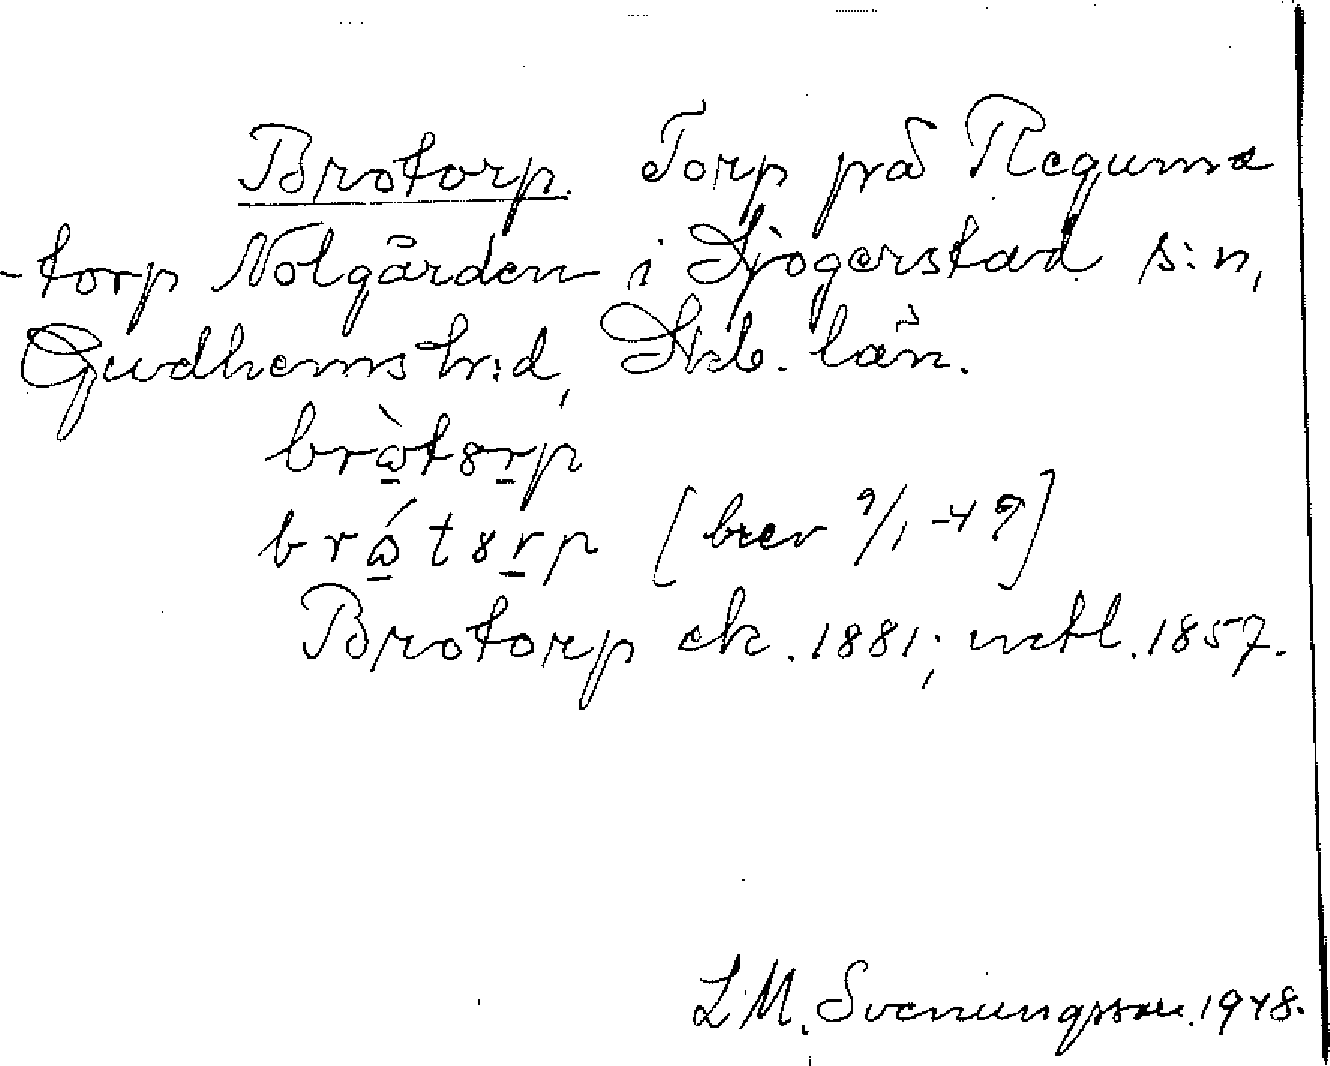 Brotorp. Torp på Regums
-torp Nolgården i Sjogerstad s:n,
Gudhems h:d, Skb. län.
brὼ̲t8r̲p
brώ̲t8r̲p [brev 9/1 -49]
Brotorp ek. 1881; uctl. 1857.
L M. Svenungsson. 1948.